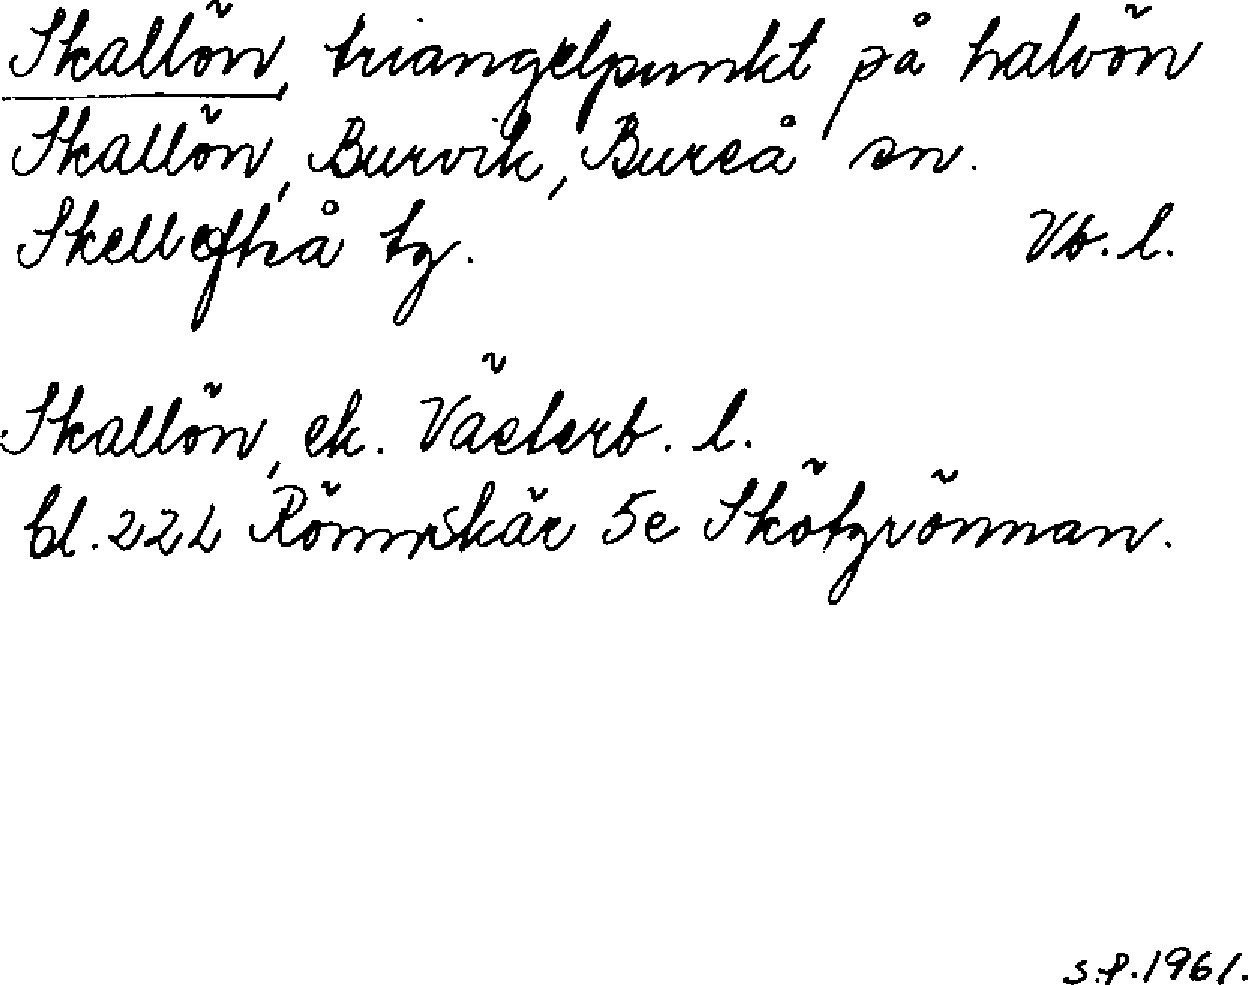 Skallön, triangelpunkt på halvön
Skallön, Burvik, Bureå sn.
Skellefteå tg. Vb. l.
Skallön, ek. Västerb. l.
bl. 22L Rönnskär 5e Skötgrönnan.
s.f. 1961.